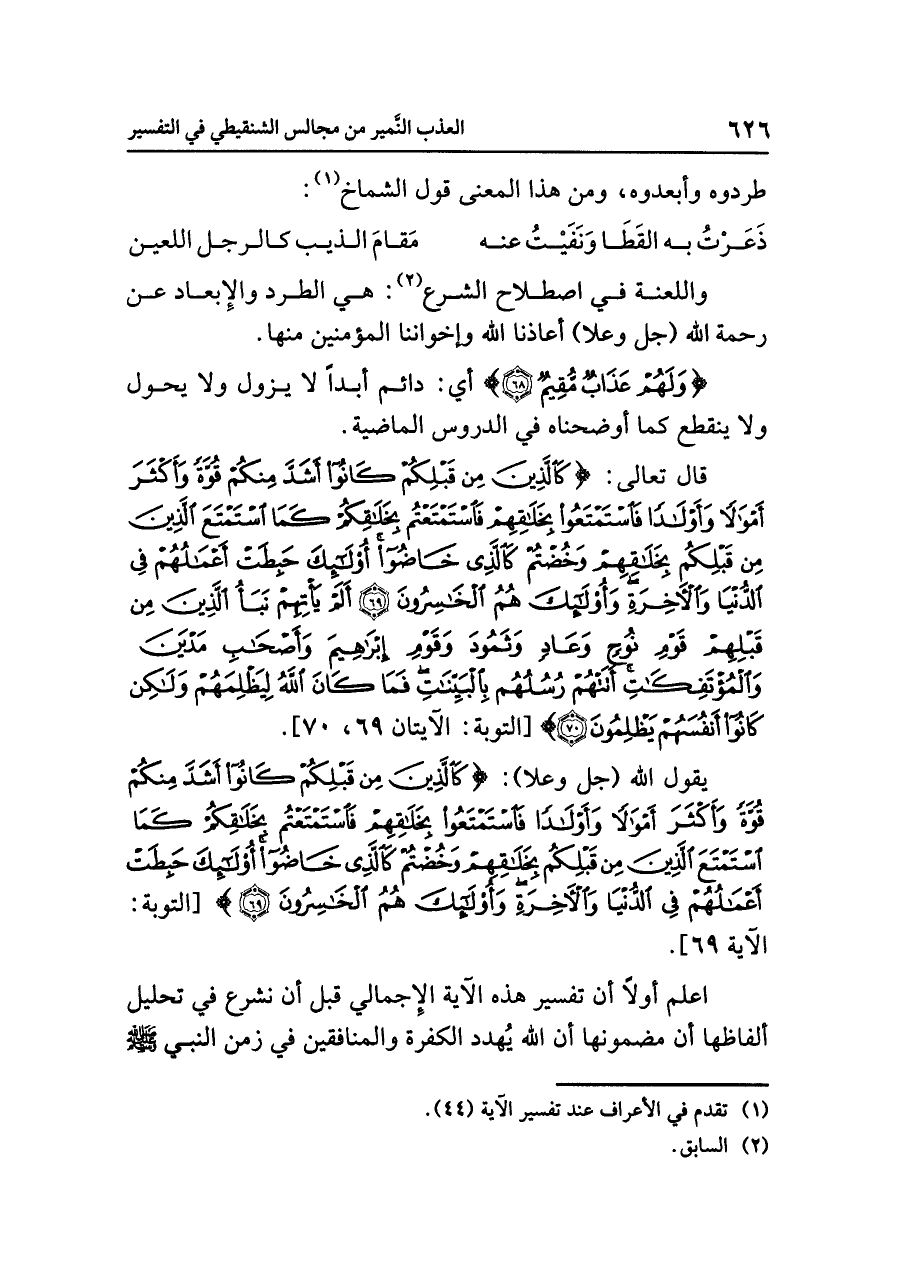 ٦٢٦ العذب النَّمير من مجالس الشنقيطي في التفسير
طردوه وأبعدوه، ومن هذا المعنى قول الشماخ(١):
ذَعَرْتُ به القَطَا وَنَفَيْتُ عنه مَقامَ الذيب كالرجل اللعين
واللعنة في اصطلاح الشرع(٢): هي الطرد والإبعاد عن
رحمة الله (جل وعلا) أعاذنا الله وإخواننا المؤمنين منها.
﴿وَلَهُمْ عَذَابٌ مُّقِيمٌ ٦٨﴾ أي: دائم أبداً لا يزول ولا يحول
ولا ينقطع كما أوضحناه في الدروس الماضية.
قال تعالى: ﴿كَٱلَّذِينَ مِن قَبْلِكُمْ كَانُوٓا۟ أَشَدَّ مِنكُمْ قُوَّةً وَأَكْثَرَ
أَمْوَٰلًا وَأَوْلَـٰدًا فَٱسْتَمْتَعُوا۟ بِخَلَـٰقِهِمْ فَٱسْتَمْتَعْتُم بِخَلَـٰقِكُمْ كَمَا ٱسْتَمْتَعَ ٱلَّذِينَ
مِن قَبْلِكُم بِخَلَـٰقِهِمْ وَخُضْتُمْ كَٱلَّذِى خَاضُوٓا۟ۚ أُو۟لَـٰٓئِكَ حَبِطَتْ أَعْمَـٰلُهُمْ فِى
ٱلدُّنْيَا وَٱلْـَٔاخِرَةِۖ وَأُو۟لَـٰٓئِكَ هُمُ ٱلْخَـٰسِرُونَ ٦٩ أَلَمْ يَأْتِهِمْ نَبَأُ ٱلَّذِينَ مِن
قَبْلِهِمْ قَوْمِ نُوحٍ وَعَادٍ وَثَمُودَ وَقَوْمِ إِبْرَٰهِيمَ وَأَصْحَـٰبِ مَدْيَنَ
وَٱلْمُؤْتَفِكَـٰتِۚ أَتَتْهُمْ رُسُلُهُم بِٱلْبَيِّنَـٰتِۖ فَمَا كَانَ ٱللَّهُ لِيَظْلِمَهُمْ وَلَـٰكِن
كَانُوٓا۟ أَنفُسَهُمْ يَظْلِمُونَ ٧٠﴾ [التوبة: الآيتان ٦٩، ٧٠].
يقول الله (جل وعلا): ﴿كَٱلَّذِينَ مِن قَبْلِكُمْ كَانُوٓا۟ أَشَدَّ مِنكُمْ
قُوَّةً وَأَكْثَرَ أَمْوَٰلًا وَأَوْلَـٰدًا فَٱسْتَمْتَعُوا۟ بِخَلَـٰقِهِمْ فَٱسْتَمْتَعْتُم بِخَلَـٰقِكُمْ كَمَا
ٱسْتَمْتَعَ ٱلَّذِينَ مِن قَبْلِكُم بِخَلَـٰقِهِمْ وَخُضْتُمْ كَٱلَّذِى خَاضُوٓا۟ۚ أُو۟لَـٰٓئِكَ حَبِطَتْ
أَعْمَـٰلُهُمْ فِى ٱلدُّنْيَا وَٱلْـَٔاخِرَةِۖ وَأُو۟لَـٰٓئِكَ هُمُ ٱلْخَـٰسِرُونَ ٦٩﴾ [التوبة:
الآية ٦٩].
اعلم أولاً أن تفسير هذه الآية الإجمالي قبل أن نشرع في تحليل
ألفاظها أن مضمونها أن الله يُهدد الكفرة والمنافقين في زمن النبي ﷺ
(١) تقدم في الأعراف عند تفسير الآية (٤٤).
(٢) السابق.